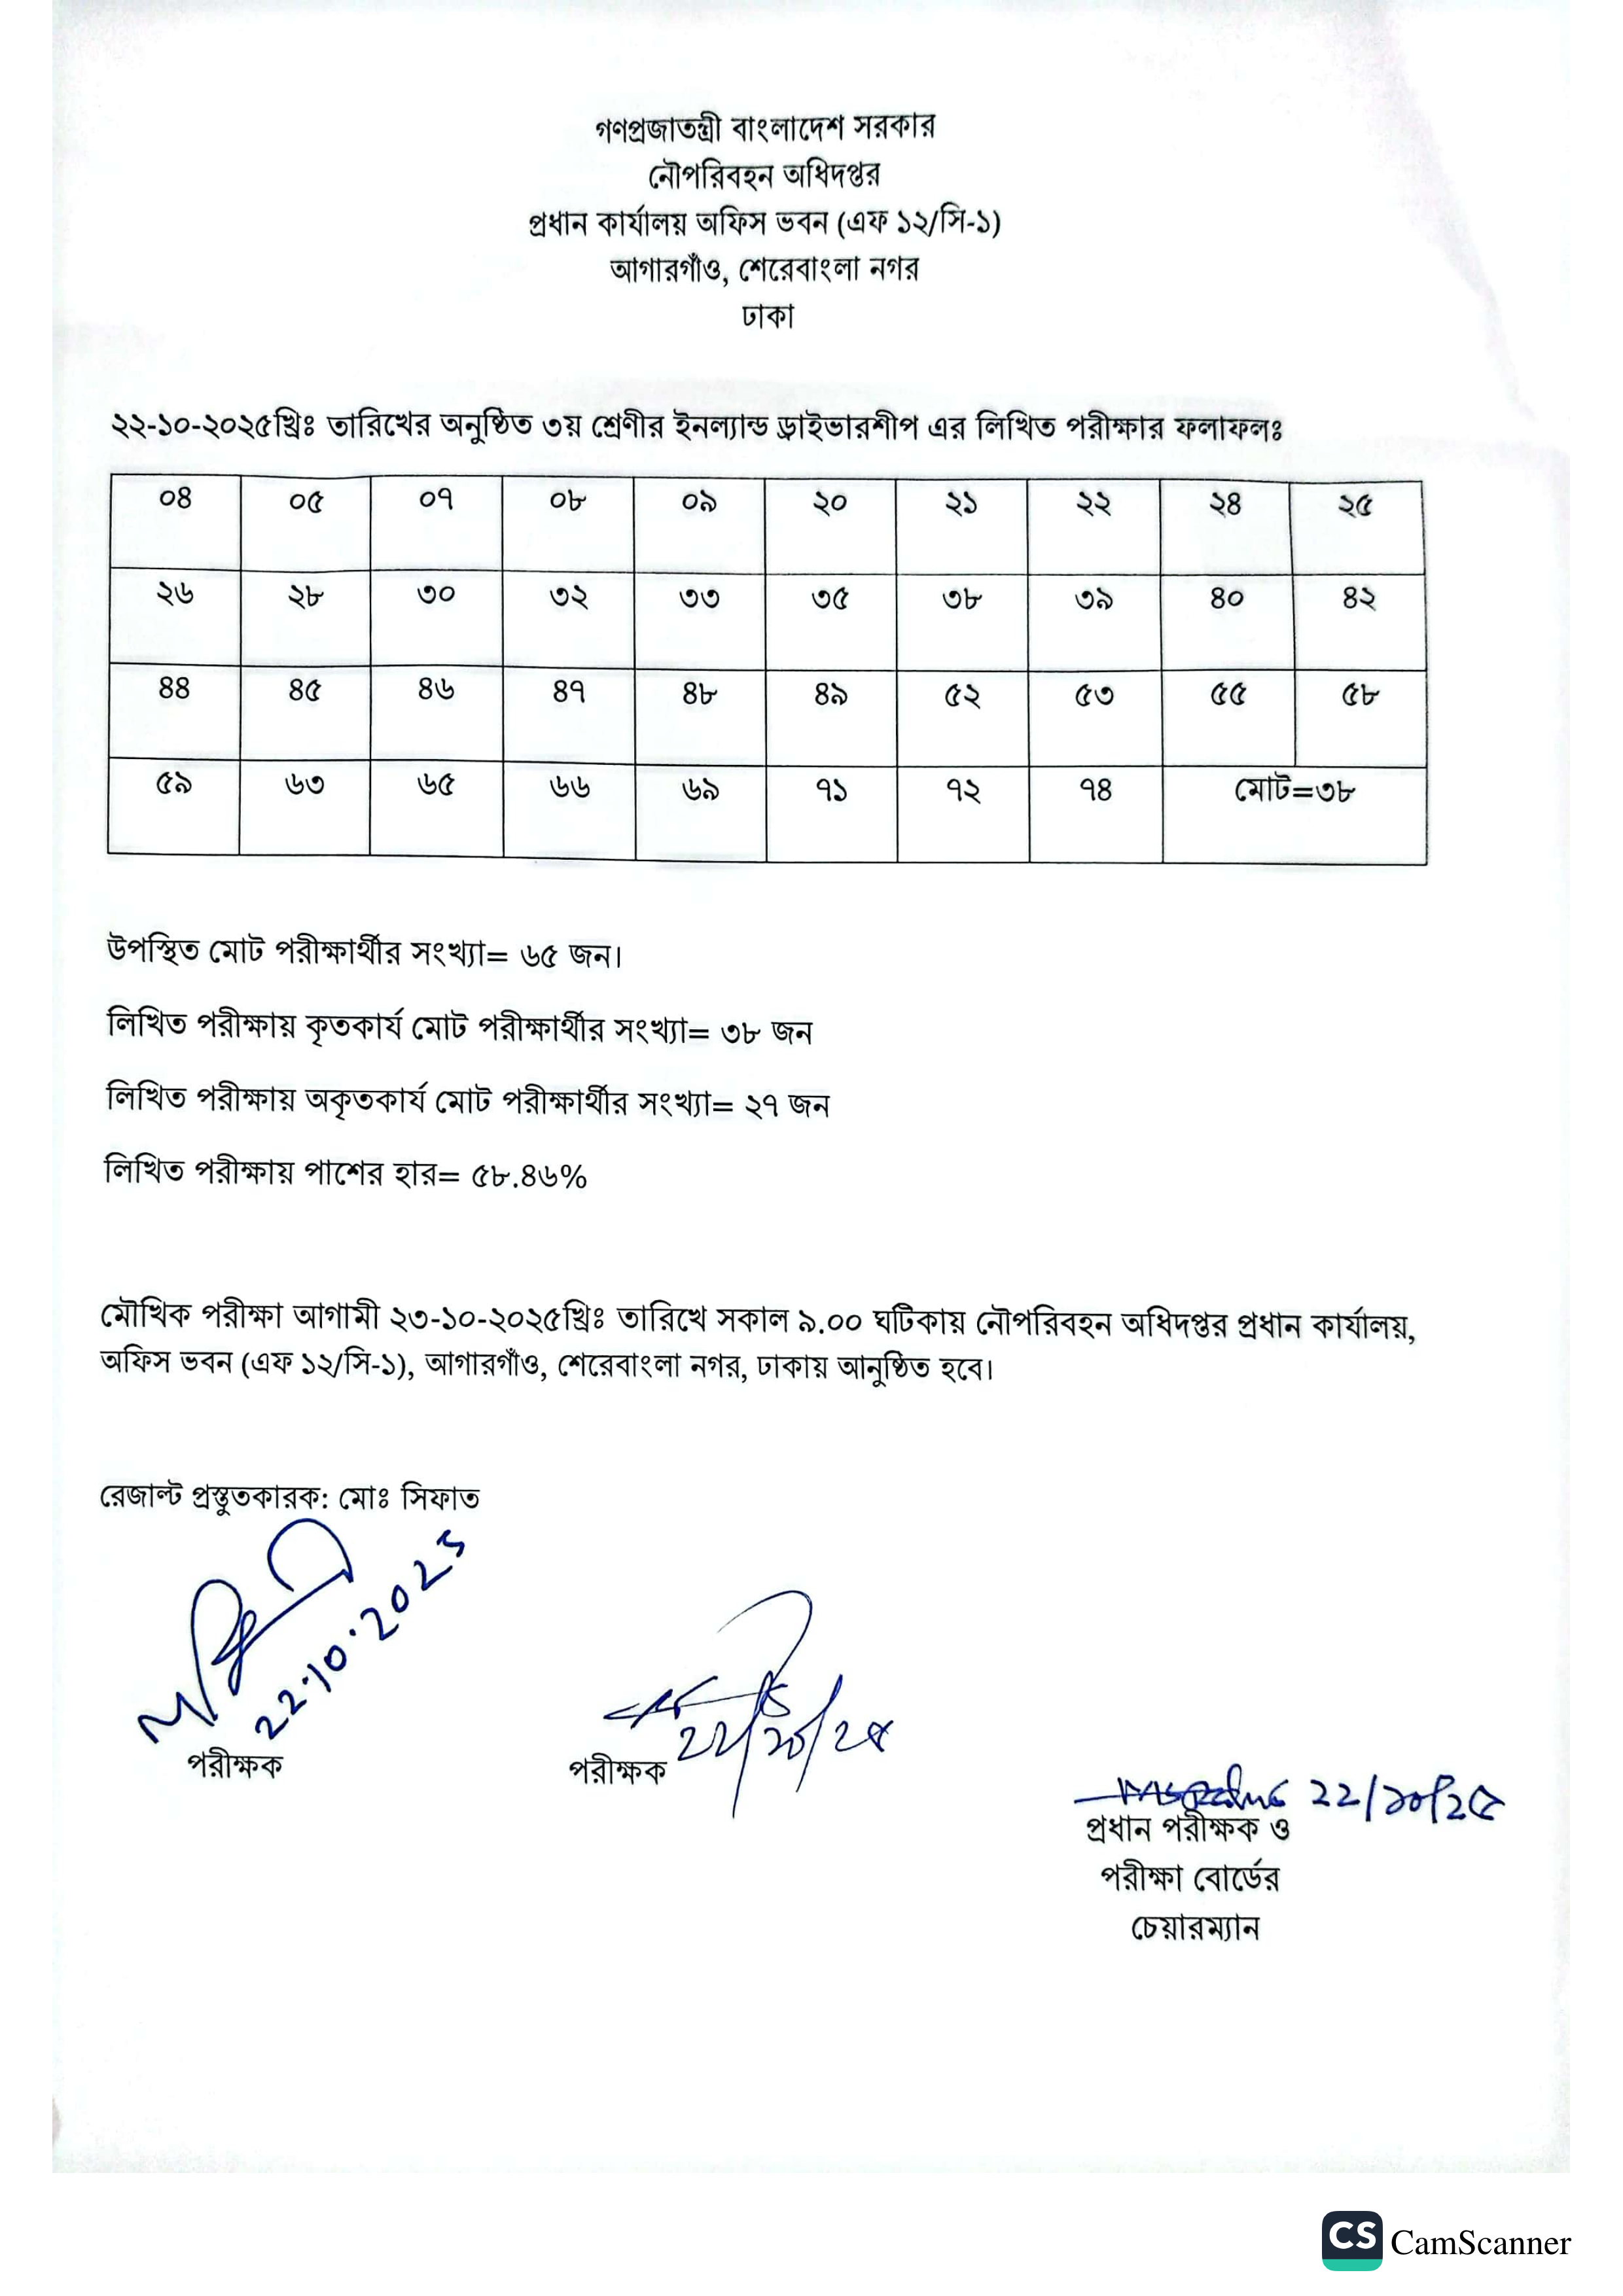 গণপ্রজাতন্ত্রী বাংলাদেশ সরকার
নৌপরিবহন অধিদপ্তর
প্রধান কার্যালয় অফিস ভবন (এফ ১২/সি-১)
আগারগাঁও, শেরেবাংলা নগর
ঢাকা
২২-১০-২০২৫খ্রিঃ তারিখের অনুষ্ঠিত ৩য় শ্রেণীর ইনল্যান্ড ড্রাইভারশীপ এর লিখিত পরীক্ষার ফলাফলঃ
০৪ ০৫ ০৭ ০৮ ০৯ ২০ ২১ ২২ ২৪ ২৫
২৬ ২৮ ৩০ ৩২ ৩৩ ৩৫ ৩৮ ৩৯ ৪০ ৪২
৪৪ ৪৫ ৪৬ ৪৭ ৪৮ ৪৯ ৫২ ৫৩ ৫৫ ৫৮
৫৯ ৬৩ ৬৫ ৬৬ ৬৯ ৭১ ৭২ ৭৪ মোট=৩৮
উপস্থিত মোট পরীক্ষার্থীর সংখ্যা= ৬৫ জন।
লিখিত পরীক্ষায় কৃতকার্য মোট পরীক্ষার্থীর সংখ্যা= ৩৮ জন
লিখিত পরীক্ষায় অকৃতকার্য মোট পরীক্ষার্থীর সংখ্যা= ২৭ জন
লিখিত পরীক্ষায় পাশের হার= ৫৮.৪৬%
মৌখিক পরীক্ষা আগামী ২৩-১০-২০২৫খ্রিঃ তারিখে সকাল ৯.০০ ঘটিকায় নৌপরিবহন অধিদপ্তর প্রধান কার্যালয়,
অফিস ভবন (এফ ১২/সি-১), আগারগাঁও, শেরেবাংলা নগর, ঢাকায় আনুষ্ঠিত হবে।
রেজাল্ট প্রস্তুতকারক: মোঃ সিফাত
22.10.2025
পরীক্ষক
২২/১০/২৫
পরীক্ষক
২২/১০/২৫
প্রধান পরীক্ষক ও
পরীক্ষা বোর্ডের
চেয়ারম্যান
CS CamScanner